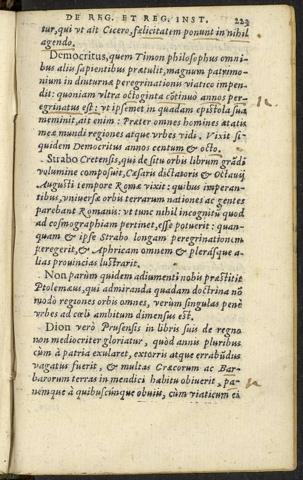 DE REG. ET REG. INST. 223
tur, qui vt ait Cicero, fælicitatem ponunt in nihil
agendo.
Democritus, quem Timon philosophus omni
bus alijs sapientibus prætulit, magnum patrimo-
nium in diuturnæ peregrinationis viatico impen-
dit: quoniam vltra octoginta cōtinuò annos pere-
grinatus est: vt ipsemet in quadam epistola sua
meminit, ait enim: Præter omnes homines ætatis
meæ mundi regiones atque vrbes vidi. Vixit si-
quidem Democritus annos centum & octo.
Strabo Cretensis, qui de situ orbis librum grādi
volumine composuit, Cæsaris dictatoris & Octauij
Augusti tempore Romæ vixit: quibus imperan-
tibus, vniuersæ orbis terrarum nationes ac gentes
parebant Romanis: vt tunc nihil incognitū quod
ad cosmographiam pertinet, esse potuerit: quan-
quam & ipse Strabo longam peregrinationem
peregerit, & Aphricam omnem & plerasque a-
lias prouincias lustrarit.
Non parùm quidem adiumenti nobis præstitit
Ptolemæus, qui admiranda quadam doctrina nō
modò regiones orbis omnes, verùm singulas penè
vrbes ad cœli ambitum dimensus est.
Dion verò Prusensis in libris suis de regno
non mediocriter gloriatur, quòd annis pluribus
cùm à patria exularet, extorris atque errabūdus
vagatus fuerit, & multas Græcorum ac Bar-
barorum terras in mendici habitu obiuerit, pa-
nemque à quibuscūnque obuijs, cùm viaticum ei